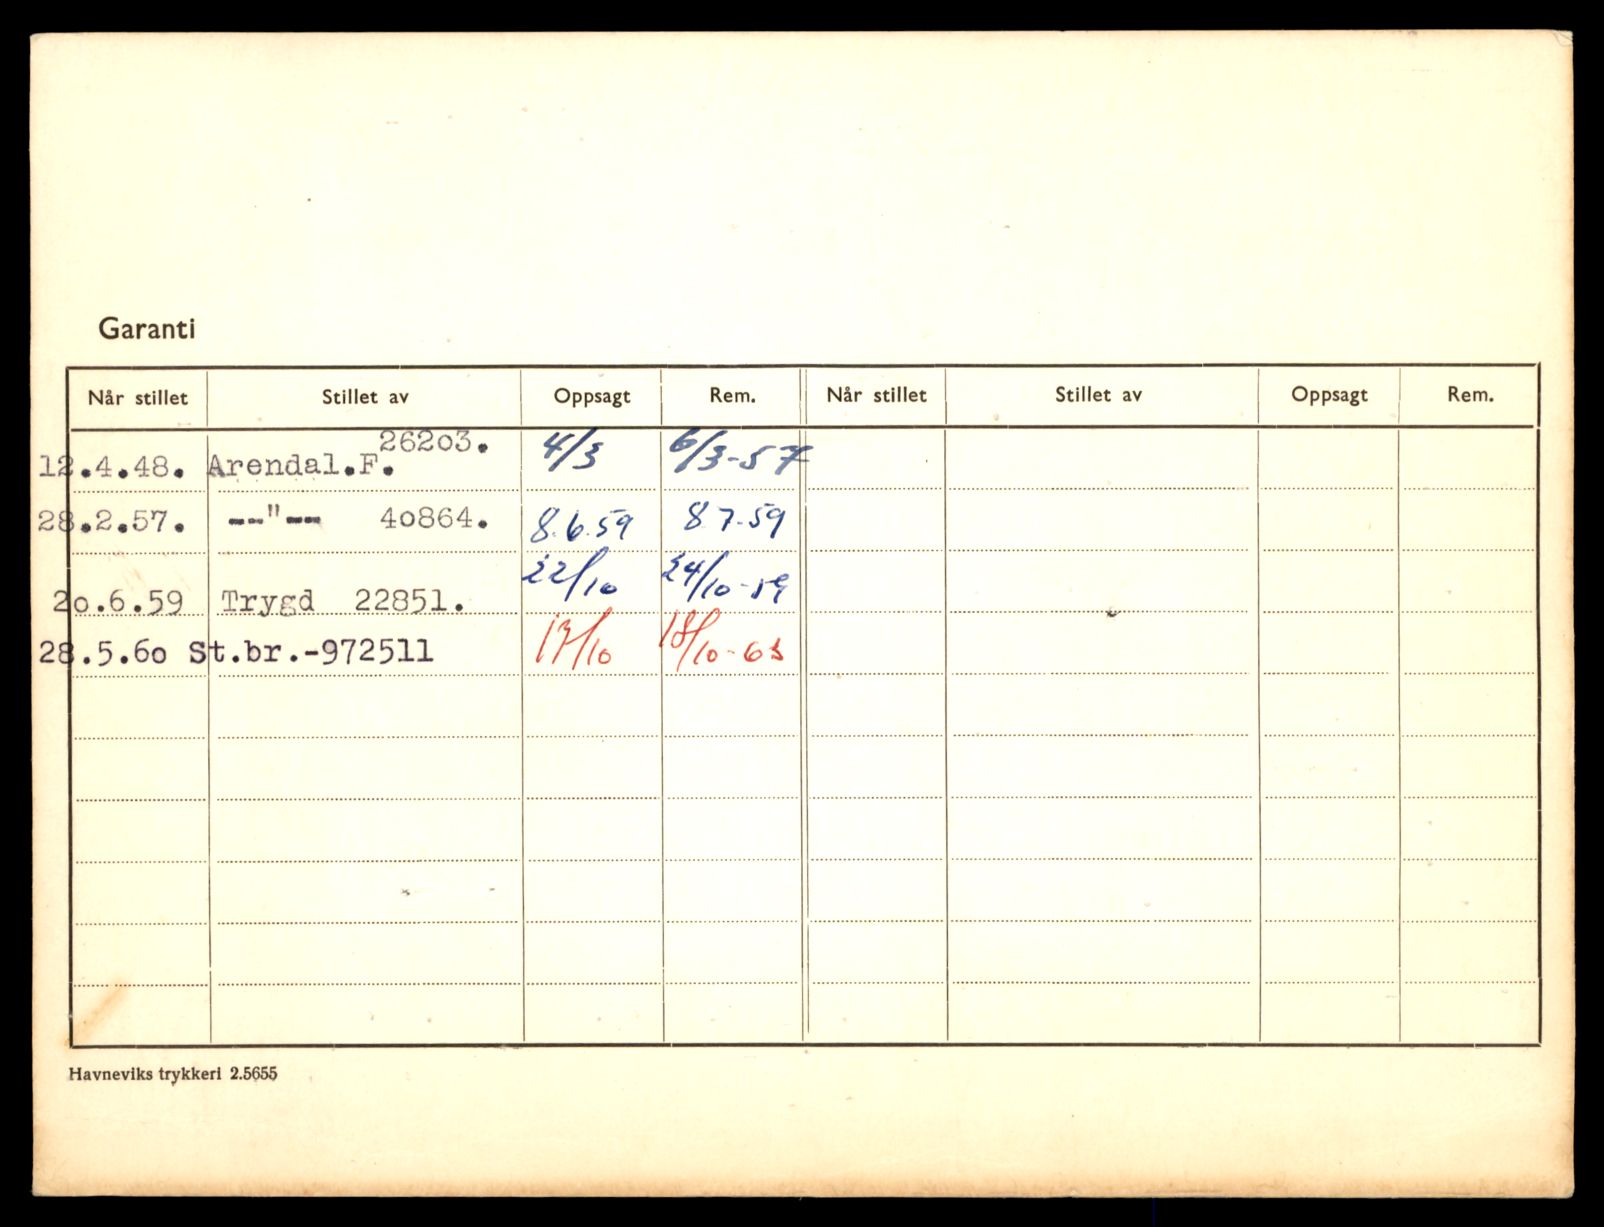 Garanti
Når stillet Stillet av Oppsagt Rem. Når stillet Stillet av Oppsagt Rem.
26203.
12.4.48. Arendal.F. 4/3 6/3-57
28.2.57. --"-- 40864. 8.6.59 8.7.59
20.6.59 Trygd 22851. 22/10 24/10-59
28.5.60 St.br.-972511 17/10 18/10-63
Havneviks trykkeri 2.5655